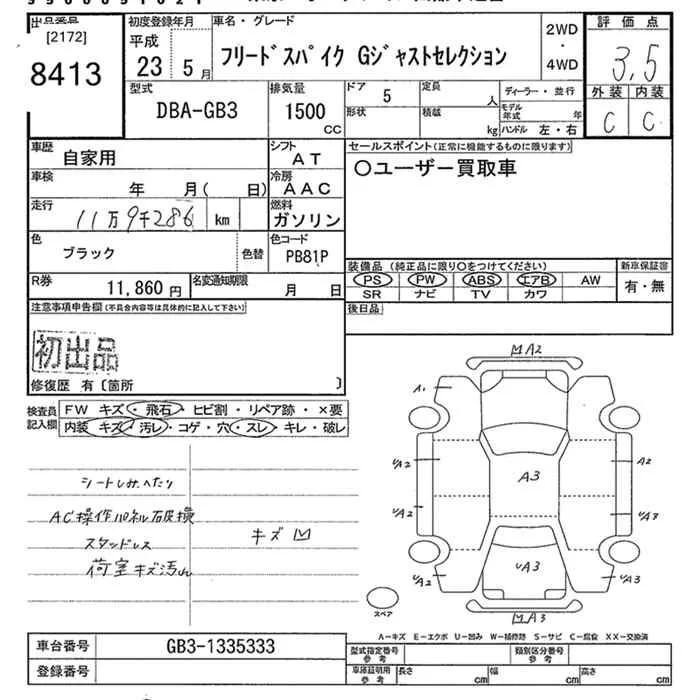 出品番号 [2172] 8413
初度登録年月 平成 23 年 5 月
車名・グレード フリードスパイク Gジャストセレクション
2WD・4WD
評価点 3.5
外装 内装
C C
型式 DBA-GB3
排気量 1500 CC
ドア 5
定員 人
形状
積載 kg
ディーラー・並行
モデル年式 年
ハンドル 左・右
車歴 自家用
シフト AT
車検 年 月( 日)
冷房 AAC
走行 11万9千286 km
燃料 ガソリン
色 ブラック 色替
色コード PB81P
R券 11,860 円
名変通知期限 月 日
セールスポイント(正常に機能するものに限ります)
〇ユーザー買取車
装備品(純正品に限り〇をつけてください)
新車保証書
PS PW ABS エアB AW
有・無
SR ナビ TV カワ
後日品
注意事項申告欄(不具合内容等は具体的に記入して下さい)
初出品
修復歴 有〔箇所 〕
検査員記入欄
FW キズ・飛石・ヒビ割・リペア跡・×要
内装 キズ・汚レ・コゲ・穴・スレ・キレ・破レ
シートしみへたり
AC操作パネル破損
スタッドレス
荷室キズ汚れ
キズ M
M A2
A1
A3
UA2
A2
UA2
UA3
UA2
UA3
UA3
M A3
スペア
A-キズ E-エクボ U-凹み W-補修跡 S-サビ C-腐食 XX-交換済
車台番号 GB3-1335333
登録番号
型式指定番号 参考
類別区分番号 参考
車庫証明用 参考 長さ cm 幅 cm 高さ cm